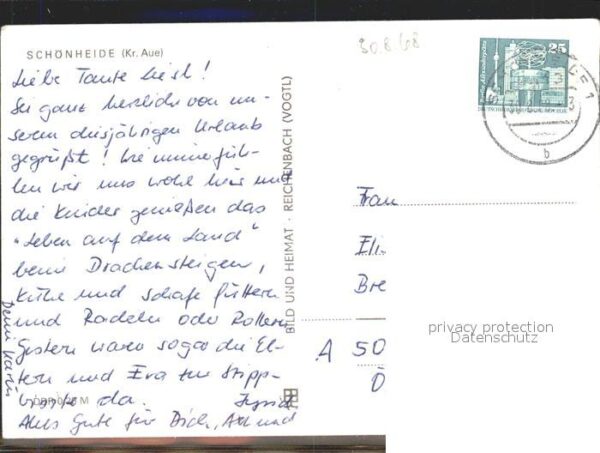 SCHÖNHEIDE (Kr. Aue)
30.8.68
Liebe Tante Liesl!
Sei ganz herzlich von un-
serem diesjährigen Urlaub
gegrüßt! Wie immer füh-
len wir uns wohl hier und
die Kinder genießen das
"Leben auf dem Land"
beim Drachensteigen,
Kühe und Schafe füttern
und Radeln oder Rollern
Gestern waren sogar die El-
tern und Eva zur Stipp-
visite da.
Alles Gute für Dich, Axel und
Deine Karin
Ingrid
BILD UND HEIMAT · REICHENBACH (VOGTL)
25
Frau
Eli
Bre
A 50
Ö
b
privacy protection
Datenschutz